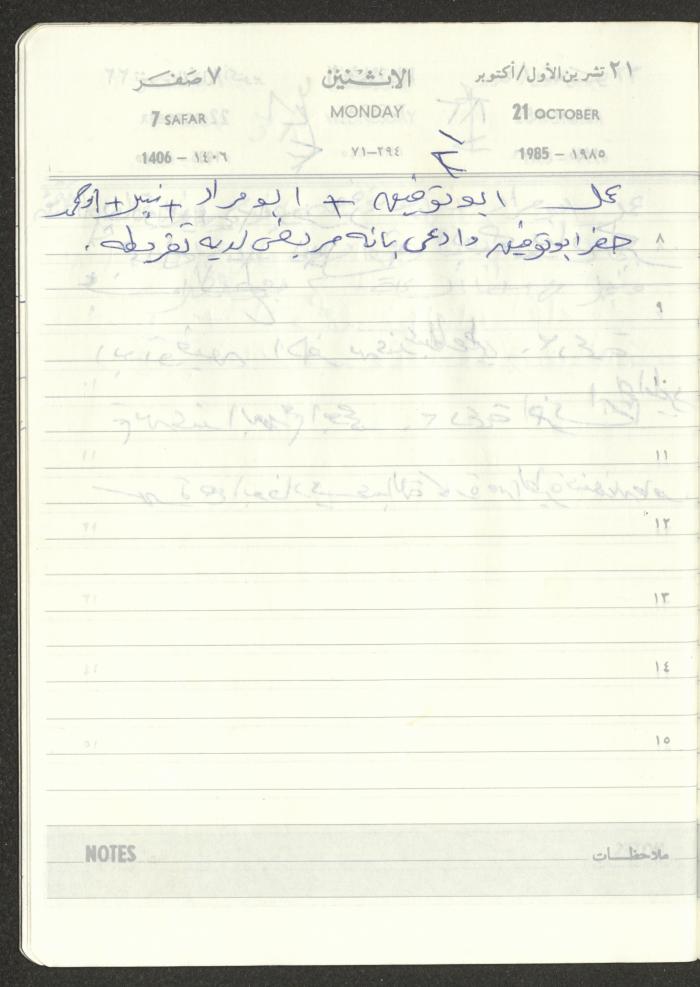 ٢١ تشرين الأول/أكتوبر الاثنين ٧ صفر
21 OCTOBER MONDAY 7 SAFAR
1985 - ١٩٨٥ ٢٩٤-٧١ 1406 - ١٤٠٦
٢
عمل ابو توفيق + ابو مراد + نبيل +
٨ حضر ابو توفيق وادعى بانه مريض لديه
٩
١٠
١١
١٢
١٣
١٤
١٥
ملاحظات NOTES